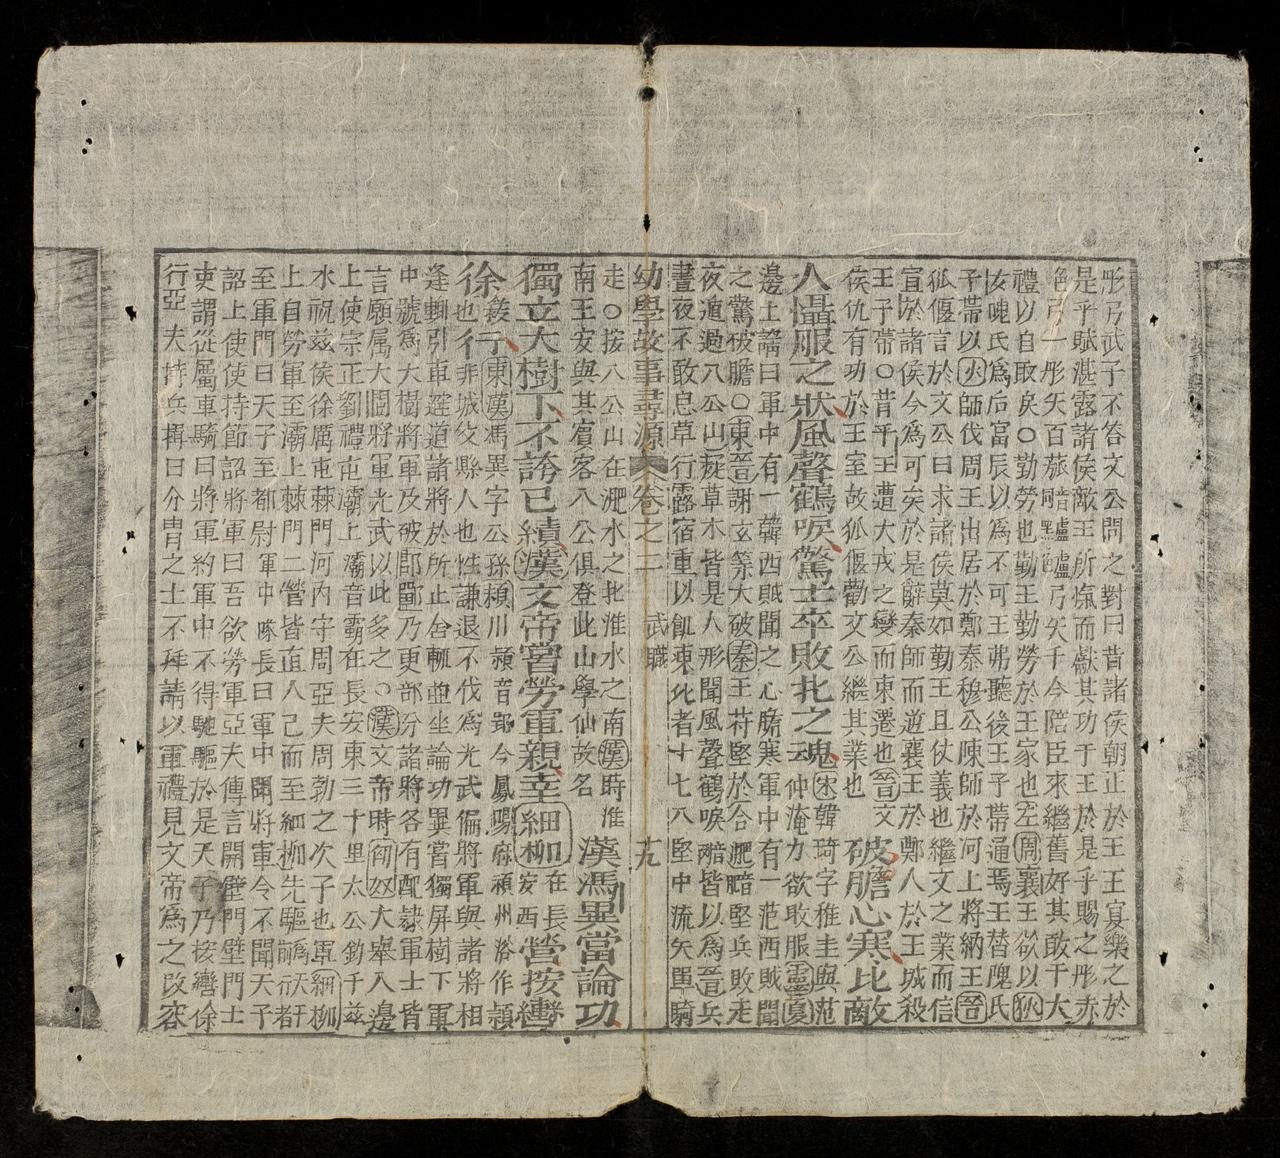 彤弓武子不答文公問之對曰昔諸侯朝正於王王宴樂之於
是乎賦湛露諸侯敵王所愾而獻其功于王於是乎賜之彤赤
色弓一彤矢百玈暗盧黑色玈弓矢千今陪臣來繼舊好其敢干大
禮以自取戾○勤勞也勤王勤勞於王家也左周襄王欲以狄
女媿氏爲后富辰以爲不可王弗聽後王子帶通焉王替隗氏
子帶以狄師伐周王出居於鄭秦穆公陳師於河上將納王晉
狐偃言於文公曰求諸侯莫如勤王且仗義也繼文之業而信
宣於諸侯今爲可矣於是辭秦師而道襄王於鄭人於王城殺
王子帶○昔平王遭犬戎之變而東遷也晉文
侯仇有功於王室故狐偃勸文公繼其業也 破膽心寒比敵
人懾服之狀風聲鶴唳驚士卒敗北之魂 宋韓琦字稚圭與范
仲淹力欲敢服靈夏
邊土謠曰軍中有一韓西賊聞之心膽寒軍中有一范西賊聞
之驚破膽○東晉謝玄等大破秦王苻堅於合淝暗堅兵敗走
夜遁過八公山疑草木皆是人形聞風聲鶴唳暗皆以為晉兵
晝夜不敢息草行露宿重以飢凍死者十七八堅中流矢單騎
幼學故事尋源 卷之二 武職 十九
走○按八公山在淝水之北淮水之南漢時淮
南王安與其賓客八公俱登此山學仙故名 漢馮異當論功
獨立大樹下不誇已績漢文帝嘗勞軍親幸細柳在長安西營按轡
徐緩也行東漢馮異字公孫潁川潁音郢今鳳陽府潁州俗作頴
非城父縣人也性謙退不伐爲光武偏將軍與諸將相
逢輒引車避道諸將於所止舍輒並坐論功異嘗獨屏樹下軍
中號為大樹將軍及破邯鄲乃更部分諸將各有配隸軍士皆
言願屬大樹將軍光武以此多之○漢文帝時匈奴大舉入邊
上使宗正劉禮屯灞上灞音霸在長安東三十里太公釣于兹
水祝兹侯徐厲屯棘門河內守周亞夫周勃之次子也軍細柳
上自勞軍至灞上棘門二營皆直入已而至細柳先驅前禡祆者
至軍門曰天子至都尉軍中隊長曰軍中聞將軍令不聞天子
詔上使使持節詔將軍曰吾欲勞軍亞夫傳言開壁門壁門士
吏謂從屬車騎曰將軍約軍中不得馳驅於是天子乃按轡徐
行亞夫持兵揖曰介冑之士不拜請以軍禮見文帝爲之改容